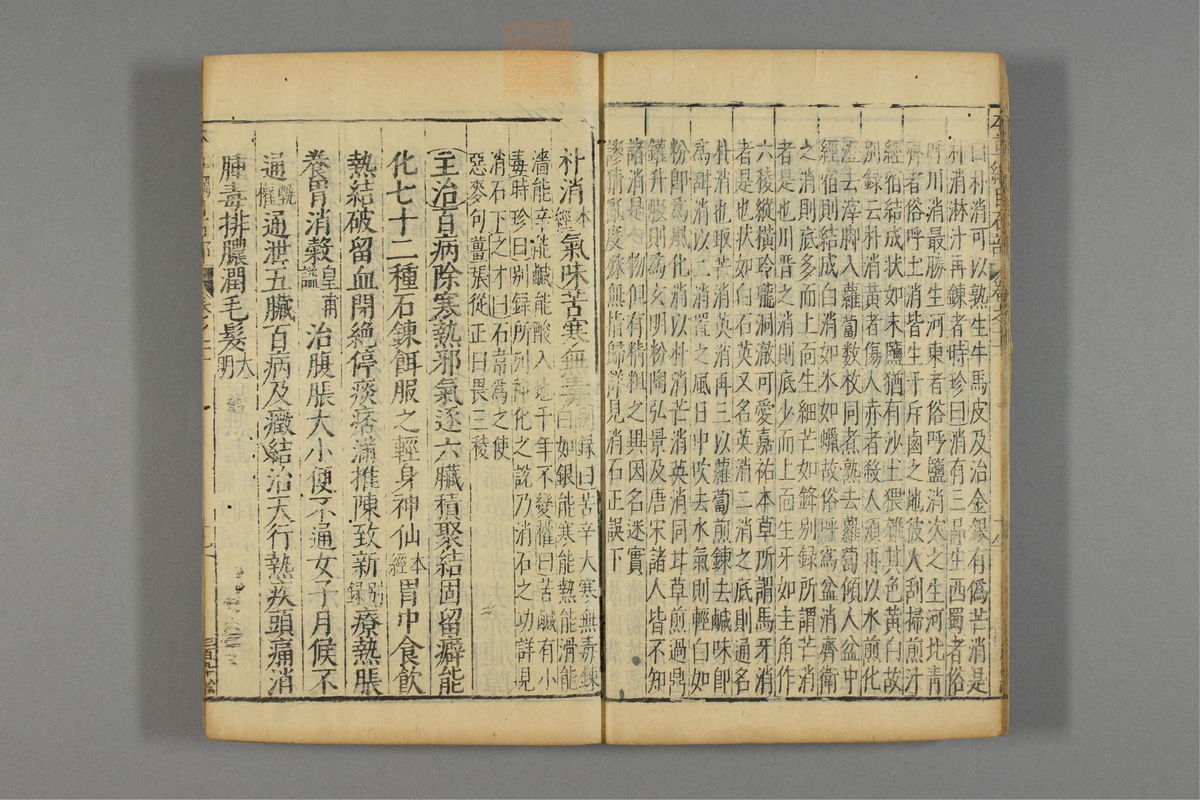 曰朴消可以熟生牛馬皮及治金銀有僞芒消是
朴消淋汁再鍊者時珍曰消有三品生西蜀者俗
呼川消最勝生河東者俗呼鹽消次之生河北青
齊者俗呼土消皆生斥鹵之地彼人刮掃煎汁
經宿結成狀如末鹽猶有沙土猥雜其色黄白故
別録云朴消黄者傷人赤者殺人須再以水煎化
澄去滓脚入蘿蔔数枚同煮熟去蘿蔔傾入盆中
經宿則結成白消如氷如蠟故俗呼為盆消齊衛
之消則底多而上面生細芒如鋒別録所謂芒消
者是也川晋之消則底少而上面生牙如圭角作
六稜縱横玲瓏洞澈可愛嘉祐本草所謂馬牙消
者是也状如白石英又名英消二消之底則通名
朴消也取芒消英消再三以蘿蔔煎鍊去鹹味即
為甜消以二消置之風日中吹去水氣則輕白如
粉即為風化消以朴消芒消英消同甘草煎過鼎
鑵升煅則為玄明粉陶弘景及唐宋諸人皆不知
諸消是一物但有精粗之異因名迷實
謬猜亂度殊無指歸詳見消石正誤下
朴消本經氣味苦寒無毒別録曰苦辛大寒無毒鍊
白如銀能寒能熱能滑能
濇能辛能鹹能酸入地千年不變權曰苦鹹有小
毒時珍曰別録所列神化之說乃消石之功詳見
消石下之才曰石韋為之使
惡麥句薑張從正曰畏三稜
主治百病除寒熱邪氣逐六臟積聚結固留癖能
化七十二種石鍊餌服之輕身神仙本經胃中食飲
熱結破留血閉絶停痰痞滿推陳致新別録療熱脹
養胃消穀皇甫謐治腹脹大小便不通女子月候不
通甄權通泄五臟百病及癥結治天行熱疾頭痛消
腫毒排膿潤毛髮大明